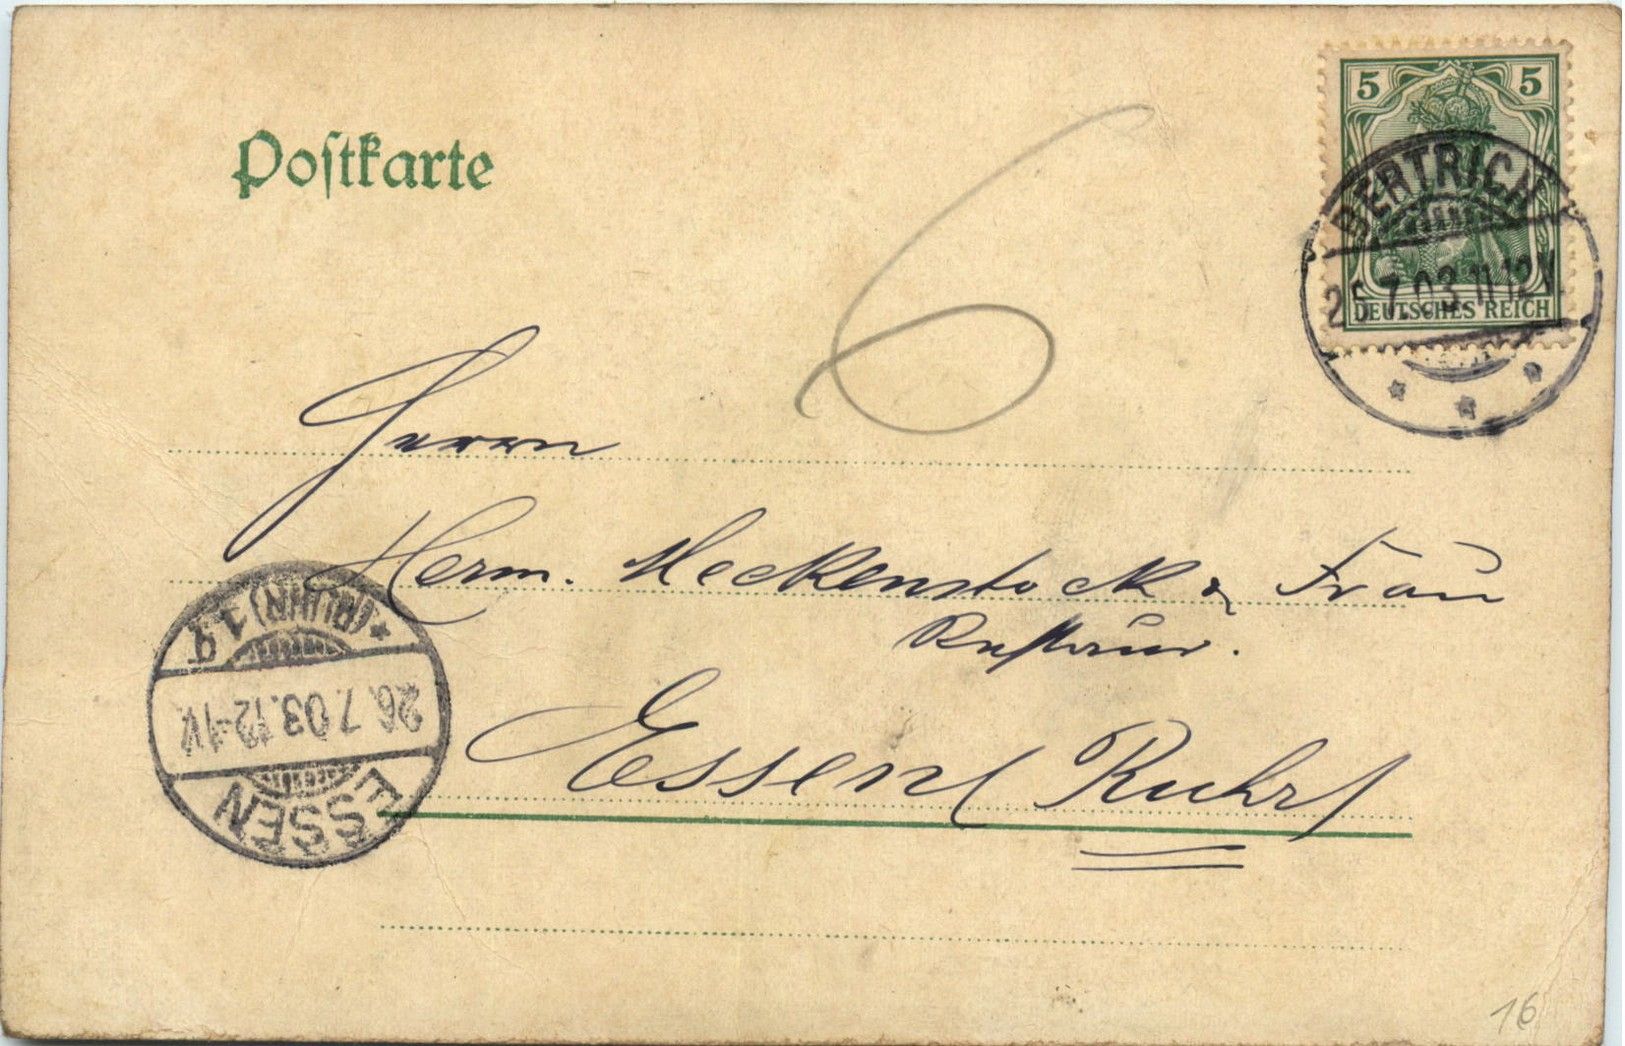 Postkarte
5 5
BERTRICH
25.7.03.11-12V.
DEUTSCHES REICH
6
Herrn
Herm. Meckenstock & Frau
Restaur.
Essen/Ruhr/
*(RUHR)1g
26.7.03.12-1V.
ESSEN
16